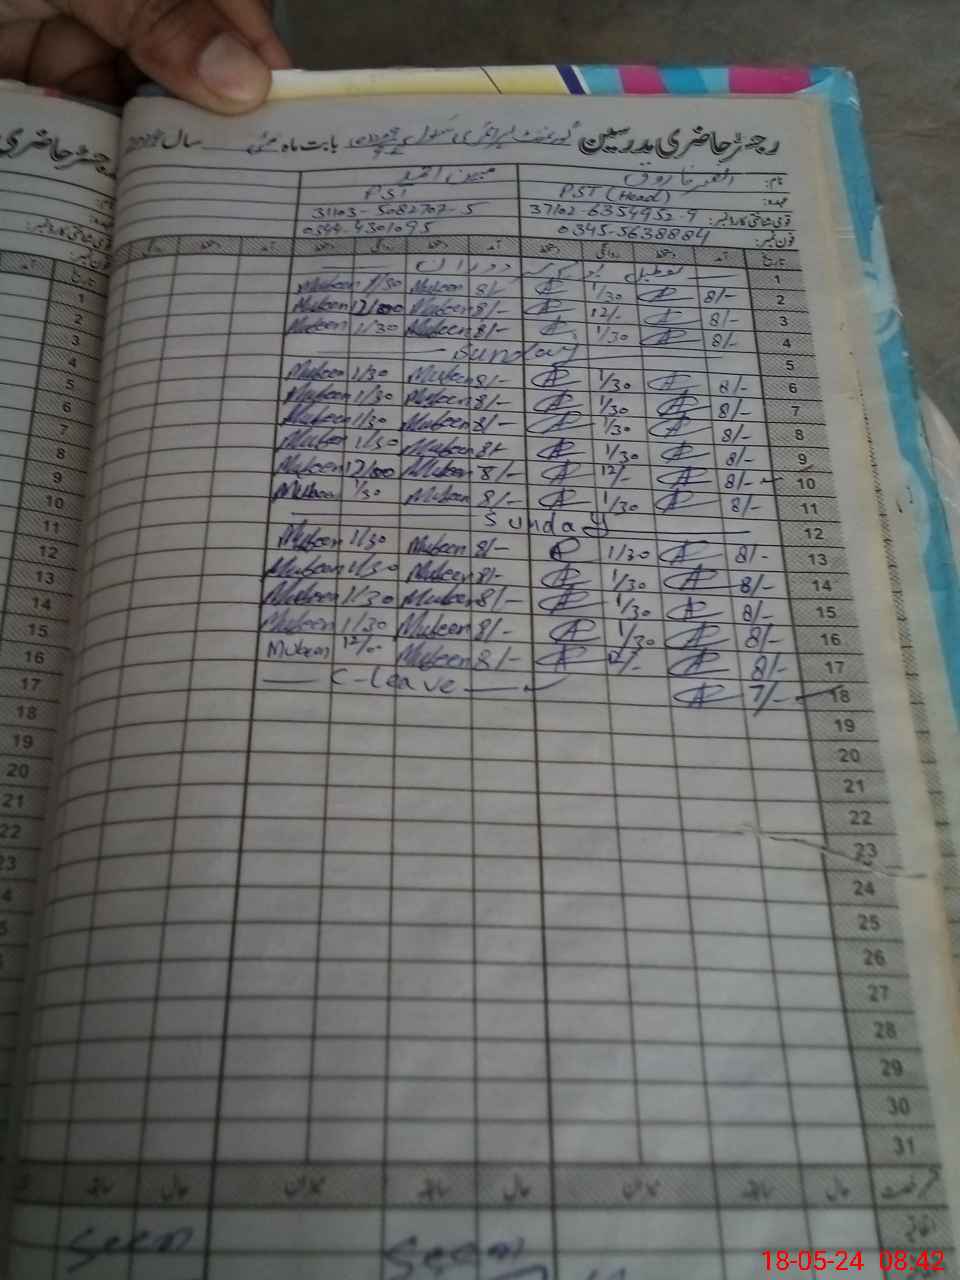 رجسٹر حاضری مدرسین گورنمنٹ پرائمری سکول بابت ماہ مئی سال
رجسٹر حاضری
نام:
مبین احمد
عہدہ: PST (Head) PST
قومی شناختی کارڈ نمبر: 37102-6354952-9 31103-5082707-5
فون نمبر: 0345-5638884 0344-4301095
تاریخ آمد دستخط روانگی دستخط آمد دستخط روانگی دستخط آمد دستخط روانگی
1 تعطیل
2 8/- 1/30 8/- Mubeen 1/30 Mubeen
3 8/- 12/- 8/- Mubeen 12/00 Mubeen
4 8/- 1/30 8/- Mubeen 1/30 Mubeen
5 Sunday
6 8/- 1/30 8/- Mubeen 1/30 Mubeen
7 8/- 1/30 8/- Mubeen 1/30 Mubeen
8 8/- 1/30 8/- Mubeen 1/30 Mubeen
9 8/- 1/30 8/- Mubeen 1/30 Mubeen
10 8/- 12/- 8/- Mubeen 12/00 Mubeen
11 8/- 1/30 8/- Mubeen 1/30 Mubeen
12 Sunday
13 8/- 1/30 8/- Mubeen 1/30 Mubeen
14 8/- 1/30 8/- Mubeen 1/30 Mubeen
15 8/- 1/30 8/- Mubeen 1/30 Mubeen
16 8/- 1/30 8/- Mubeen 1/30 Mubeen
17 8/- 12/- 8/- Mubeen 12/- Mubeen
18 7/- C-leave
19
20
21
22
23
24
25
26
27
28
29
30
31
حال سابقہ میزان حال سابقہ میزان حال سابقہ
Seen Seen
18-05-24 08:42